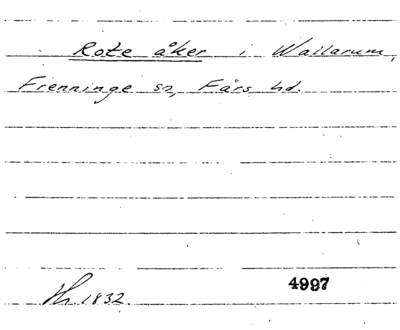 Rote åker i Wallarum,
Frenninge sn, Färs hd.
Th. 1832
4997